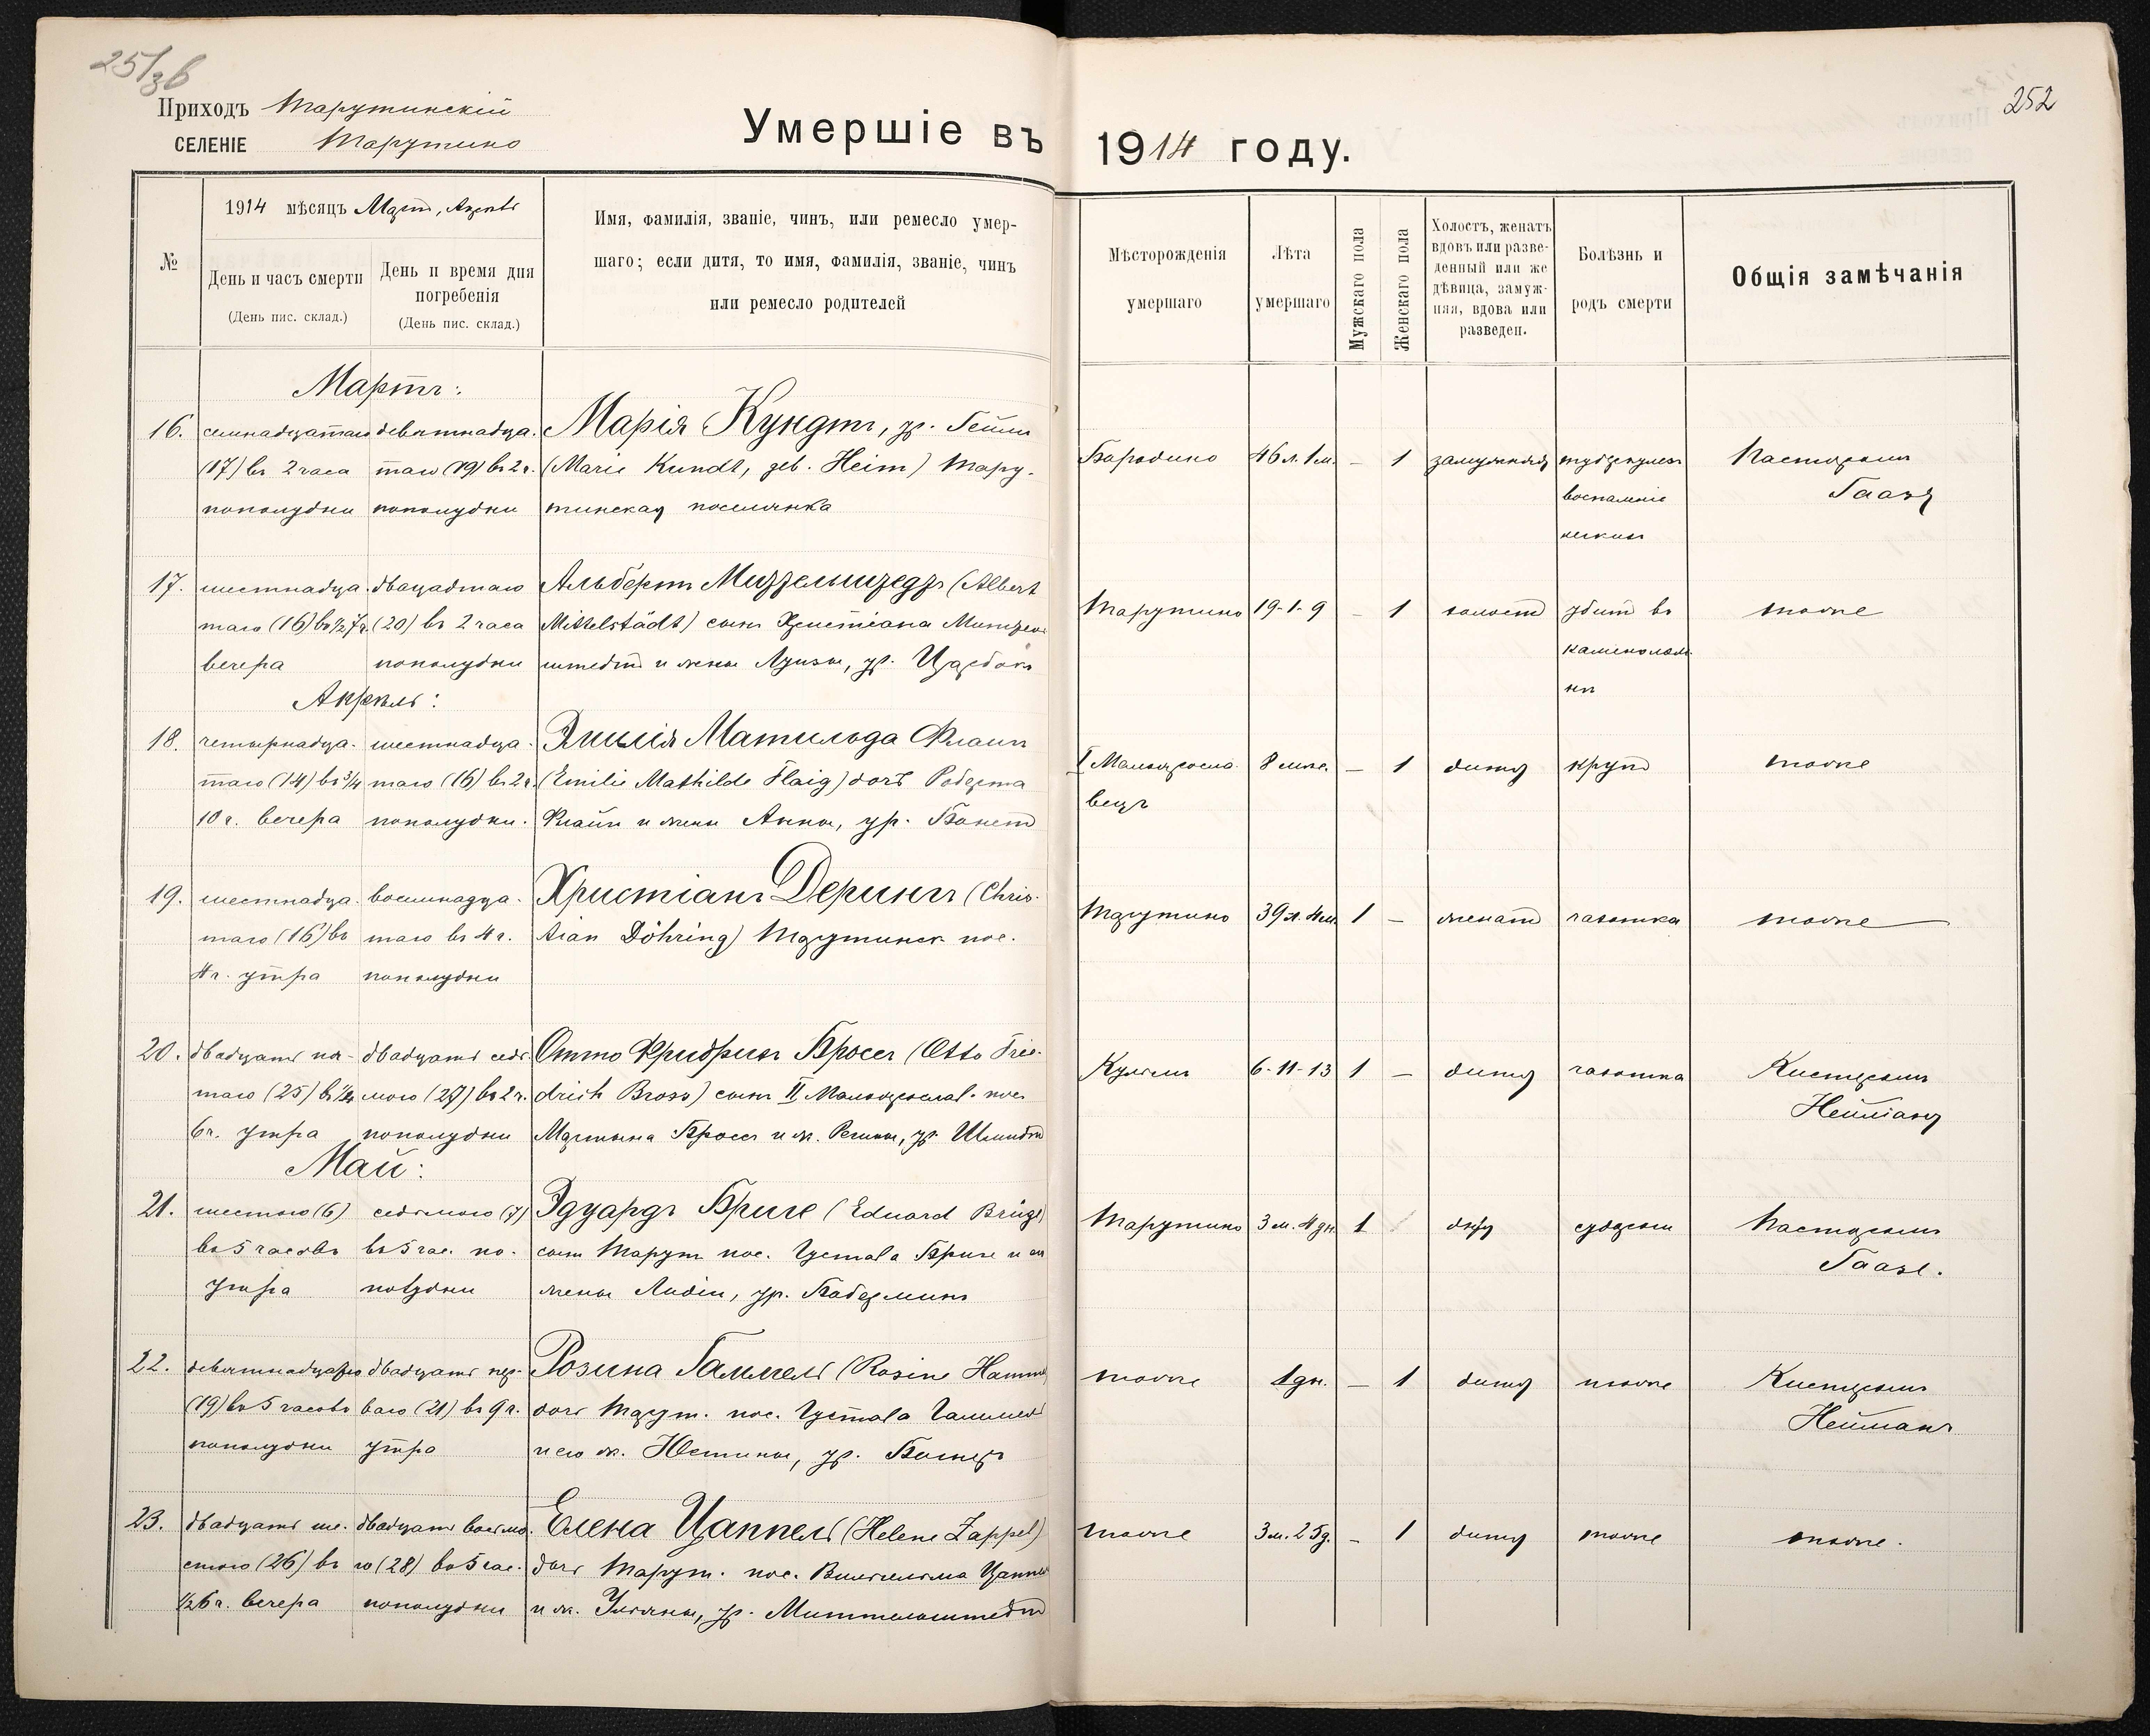 251/зв
252
Приходъ Тарутинскій
СЕЛЕНІЕ Тарутино
Умершіе въ 1914 году.
№
1914 мѣсяцъ Мартъ, Апрѣль
День и часъ смерти
(День пис. склад.)
День и время дня
погребенія
(День пис. склад.)
Имя, фамилія, званіе, чинъ, или ремесло умер-
шаго; если дитя, то имя, фамилія, званіе, чинъ
или ремесло родителей
Мѣсторожденія
умершаго
Лѣта
умершаго
Мужскаго пола
Женскаго пола
Холостъ, женатъ
вдовъ или разве-
денный или же
дѣвица, замуж-
няя, вдова или
разведен.
Болѣзнь и
родъ смерти
Общія замѣчанія
Мартъ:
16.
семнадцатаго
(17) въ 2 часа
пополудни
девятнадца-
таго (19) въ 2 ч.
пополудни
Марія Кундтъ, ур. Геймъ
(Marie Kundt, geb. Heim) Тару-
тинская поселянка
Бородино
46 л. 1 м.
— 1
замужняя
туберкулезн
воспаленіе
легкихъ
Пасторомъ
Гаазе
17.
шестнадца-
таго (16) въ 1/2 7 ч.
вечера
двацадтаго
(20) въ 2 часа
пополудни
Альбертъ (Albert
Mittelstädt) сынъ Христіана
штедтъ и жены Луизы, ур.
Тарутино
19-1-9
— 1
холостъ
убитъ въ
каменолом-
нѣ
тоже
Апрѣль:
18.
четырнадца-
таго (14) въ 3/4
10 ч. вечера
шестнадца-
таго (16) въ 2 ч.
пополудни.
Эмилія Матильда Флаигъ
(Emilie Mathilde Flaig) дочь Роберта
Флайгъ и жены Анны, ур. Бонетъ
I Малояросла-
вецъ
8 мѣс.
— 1
дитя
крупъ
тоже
19.
шестнадца-
таго (16) въ
4 ч. утра
восемнадца-
таго въ 4 ч.
пополудни
Христіанъ Дерингъ (Chris-
tian Döhring) Тарутинск. пос.
Тарутино
39 л. 4 м.
1 —
женатъ
чахотка
тоже
20.
двадцать пя-
таго (25) въ
6 ч. утра
двадцать седь-
мого (27) въ 2 ч.
пополудни
Отто Фридрихъ Бросъ (Otto Frie-
drich Bross) сынъ II Малоярослав. пос.
Мартына Бросъ и ж. Регины, ур. Шмидтъ
Кульмъ
6-11-13
1 —
дитя
чахотка
Кистеромъ
Нейманъ
Май:
21.
шестого (6)
въ 5 часовъ
утра
седьмого (7)
въ 5 час. по-
полудни
Эдуардъ Бриге (Eduard Brüge)
сынъ Тарут. пос. Густава Бриге и
жены Лидіи, ур.
Тарутино
3 м. 4 дн.
1
дитя
судороги
Пасторомъ
Гаазе.
22.
девятнадцатаго
(19) въ 5 часовъ
пополудни
двадцать пер-
ваго (21) въ 9 ч.
утра
Розина Гаммель (Rosine Hammel
дочь Тарут. пос. Густава Гаммель
и его ж. Юстины, ур.
тоже
1 дн.
— 1
дитя
тоже
Кистеромъ
Нейманъ
23.
двадцать ше-
стого (26) въ
1/2 6 ч. вечера
двадцать восьмо-
го (28) въ 5 час.
пополудни
Елена Цаппель (Helene Zappel)
дочь Тарут. пос. Вильгельма Цаппель
и ж. Ульяны, ур. Миттельштедтъ
тоже
3 м. 25 д.
— 1
дитя
тоже
тоже.